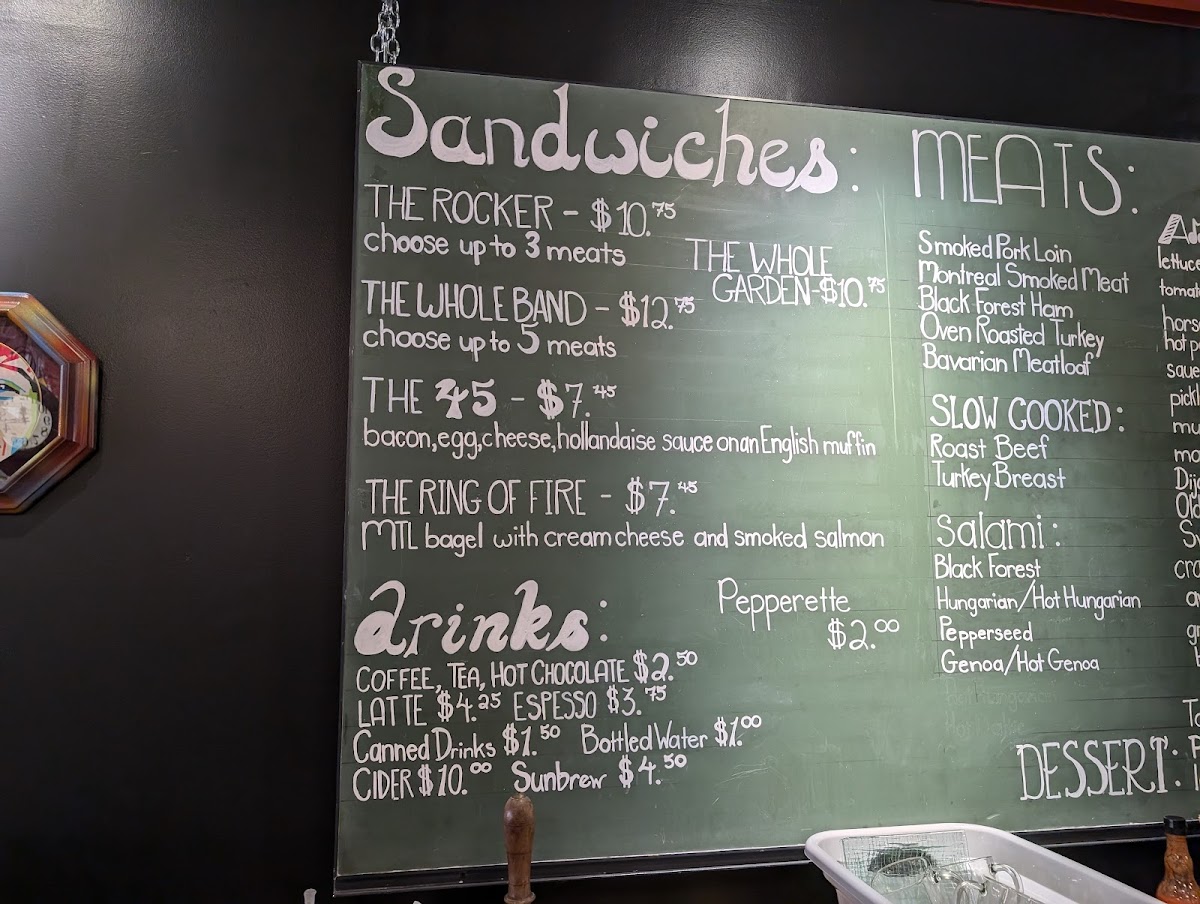 Sandwiches:
THE ROCKER - $10.75
choose up to 3 meats
THE WHOLE
GARDEN-$10.75
THE WHOLE BAND - $12.75
choose up to 5 meats
THE 45 - $7.45
bacon, egg, cheese, hollandaise sauce on an English muffin
THE RING OF FIRE - $7.45
MTL bagel with cream cheese and smoked salmon
drinks:
COFFEE, TEA, HOT CHOCOLATE $2.50
LATTE $4.25 ESPESSO $3.75
Canned Drinks $1.50 Bottled Water $1.00
CIDER $10.00 Sunbrew $4.50
Pepperette
$2.00
MEATS:
Smoked Pork Loin
Montreal Smoked Meat
Black Forest Ham
Oven Roasted Turkey
Bavarian Meatloaf
SLOW COOKED:
Roast Beef
Turkey Breast
Salami:
Black Forest
Hungarian/Hot Hungarian
Pepperseed
Genoa/Hot Genoa
DESSERT:
lettuce